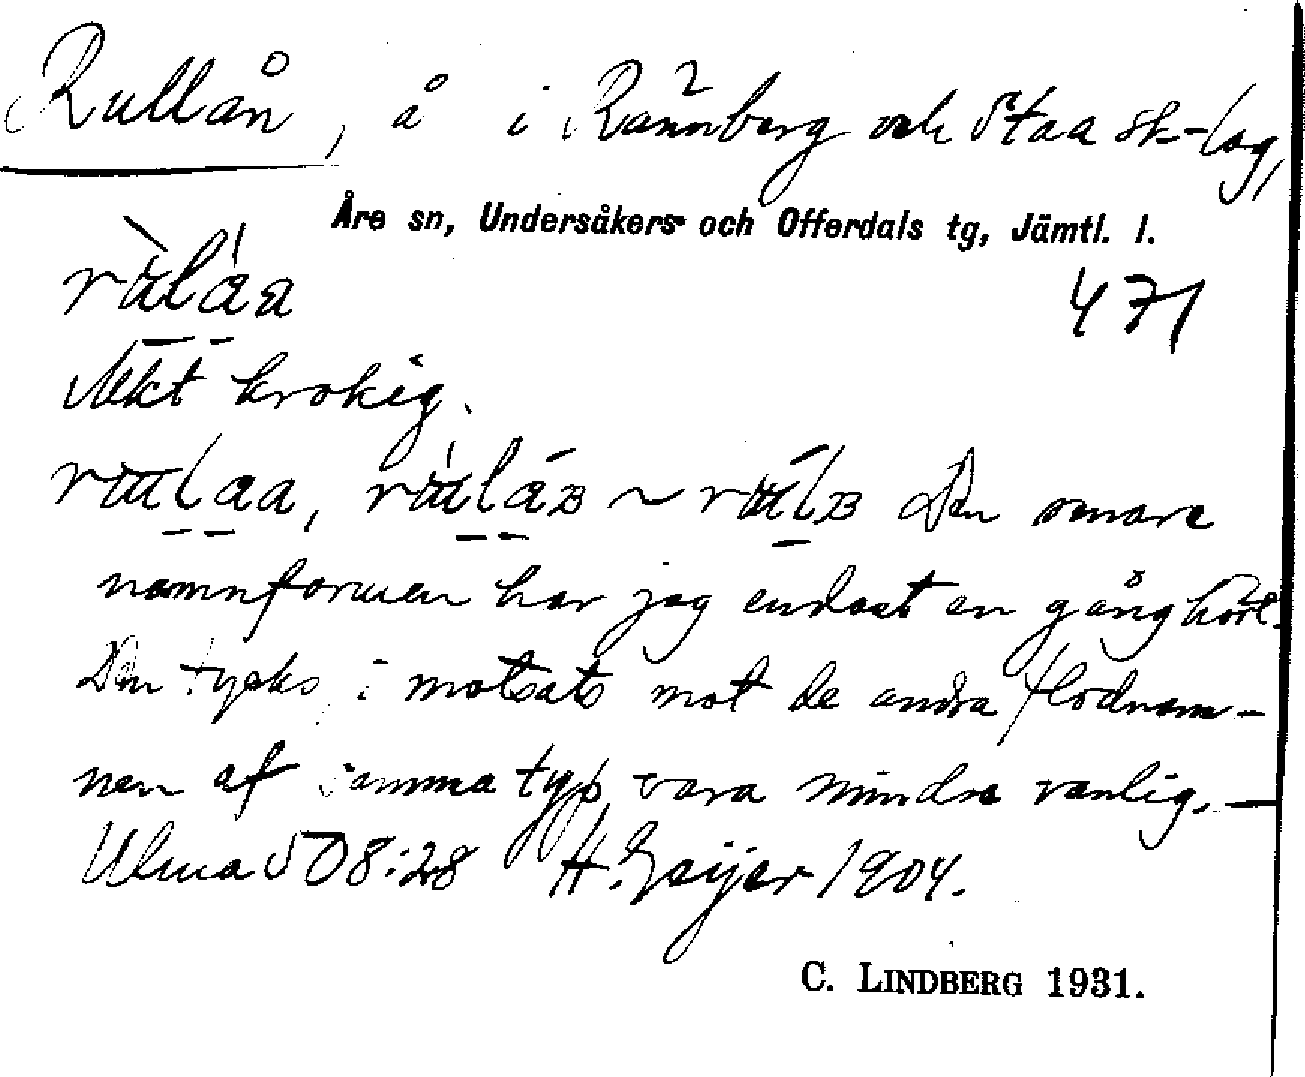 Rullån, å i Rännberg och Staa sk-lag,
Åre sn, Undersåkers- och Offerdals tg, Jämtl. l.
471
Mkt krokig.
Den senare
namnformen har jag endast en gång hört.
Den tycks i motsats mot de andra flodnam-
nen af samma typ vara mindre vanlig. —
Ulma 508:28 H. Geijer 1904.
C. LINDBERG 1931.